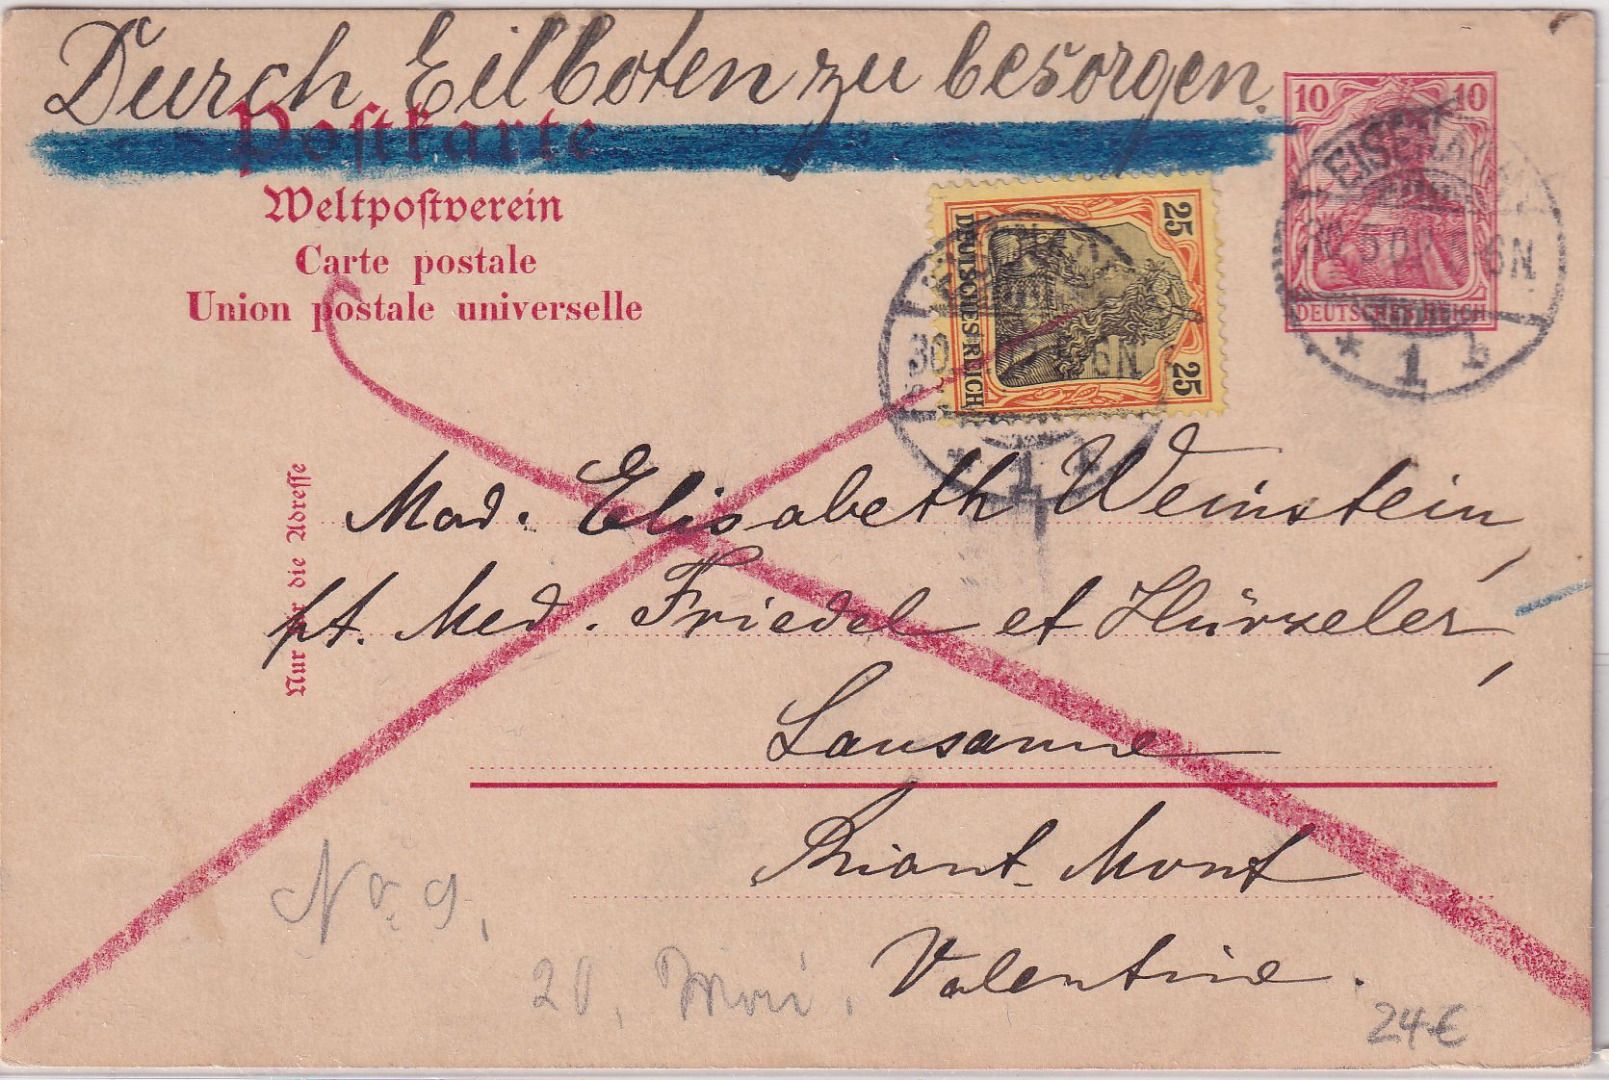 Durch Eilboten zu besorgen.
Postkarte
Weltpostverein
Carte postale
Union postale universelle
10 10
DEUTSCHES REICH
6N
* 1 b
25 25
DEUTSCHES REICH
30
6N
* 1
Nur die Adresse
Mad. Elisabeth Weinstein,
pt. Med. Friedel et Hürzeler,
Lausanne
Riant-Mont
Valentine.
No. 9.
20.
24€